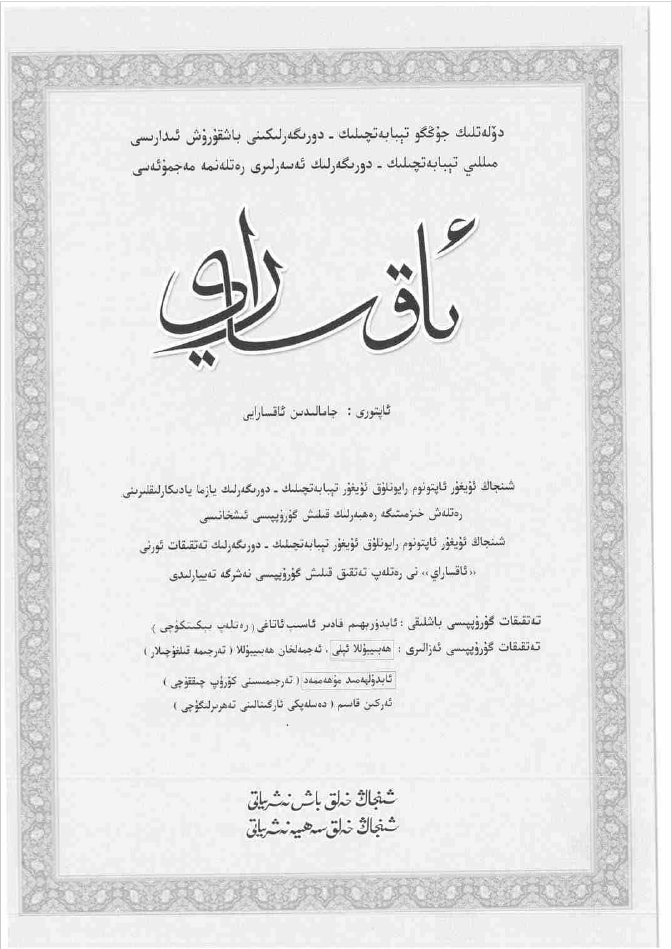 دۆلەتلىك جۇڭگو تېبابەتچىلىك - دورىگەرلىكىنى باشقۇرۇش ئىدارىسى
مىللىي تېبابەتچىلىك - دورىگەرلىك ئەسەرلىرى رەتلەنمە مەجمۇئەسى
ئاقساراي
ئاپتورى : جامالىددىن ئاقسارايى
شىنجاڭ ئۇيغۇر ئاپتونوم رايونلۇق ئۇيغۇر تېبابەتچىلىك - دورىگەرلىك يازما يادىكارلىقلىرىنى
رەتلەش خىزمىتىگە رەھبەرلىك قىلىش گۇرۇپپىسى ئىشخانىسى
شىنجاڭ ئۇيغۇر ئاپتونوم رايونلۇق ئۇيغۇر تېبابەتچىلىك - دورىگەرلىك تەتقىقات ئورنى
«ئاقساراي» نى رەتلەپ تەتقىق قىلىش گۇرۇپپىسى نەشرگە تەييارلىدى
تەتقىقات گۇرۇپپىسى باشلىقى : ئابدۇرېھىم قادىر ئاسىب ئاتاغى ( رەتلەپ بېكىتكۈچى )
تەتقىقات گۇرۇپپىسى ئەزالىرى : ھەبىبۇللا ئېلى ، ئەجمەلخان ھەبىبۇللا ( تەرجىمە قىلغۇچىلار )
ئابدۇلھەمىد مۇھەممەد ( تەرجىمىسىنى كۆرۈپ چىققۇچى )
ئەركىن قاسىم ( دەسلەپكى ئارگىنالىنى تەھرىرلىگۈچى )
شىنجاڭ خەلق باش نەشرىياتى
شىنجاڭ خەلق سەھىيە نەشرىياتى